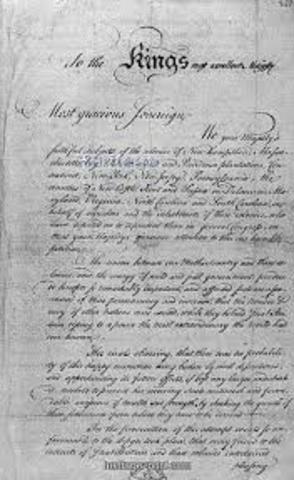 To the Kings most excellent Majesty
Most gracious Sovereign,
We your Majesty's
faithful subjects of the colonies of New Hampshire, Massa-
chusetts bay, Rhode island and Providence plantations, Con-
necticut, New York, New Jersey, Pennsylvania, the
counties of New Castle Kent and Sussex on Delaware, Ma-
ryland, Virginia, North Carolina and South Carolina, in
behalf of ourselves and the inhabitants of these colonies, who
have deputed us to represent them in general Congress, en-
treat your Majestys gracious attention to this our humble
petition.
The union between our Mother country and these
colonies and the energy of mild and just government produc-
ed benefits so remarkably important, and afforded such an assu-
rance of their permanency and increase, that the wonder &
envy of other nations were excited, while they beheld Great Bri-
tain rising to a power the most extraordinary the world had
ever known.
Her rivals observing, that there was no probabi-
lity of this happy connection being broken by civil dissensions,
and apprehending its future effects, if left any longer undisturb-
ed, resolved to prevent
of wealth and strength, by checking the growth of
these settlements from which they were to be
In the prosecution of this attempt events so un-
favourable to the design took place, that every friend to the
interests of Great Britain and these colonies entertained
pleasing